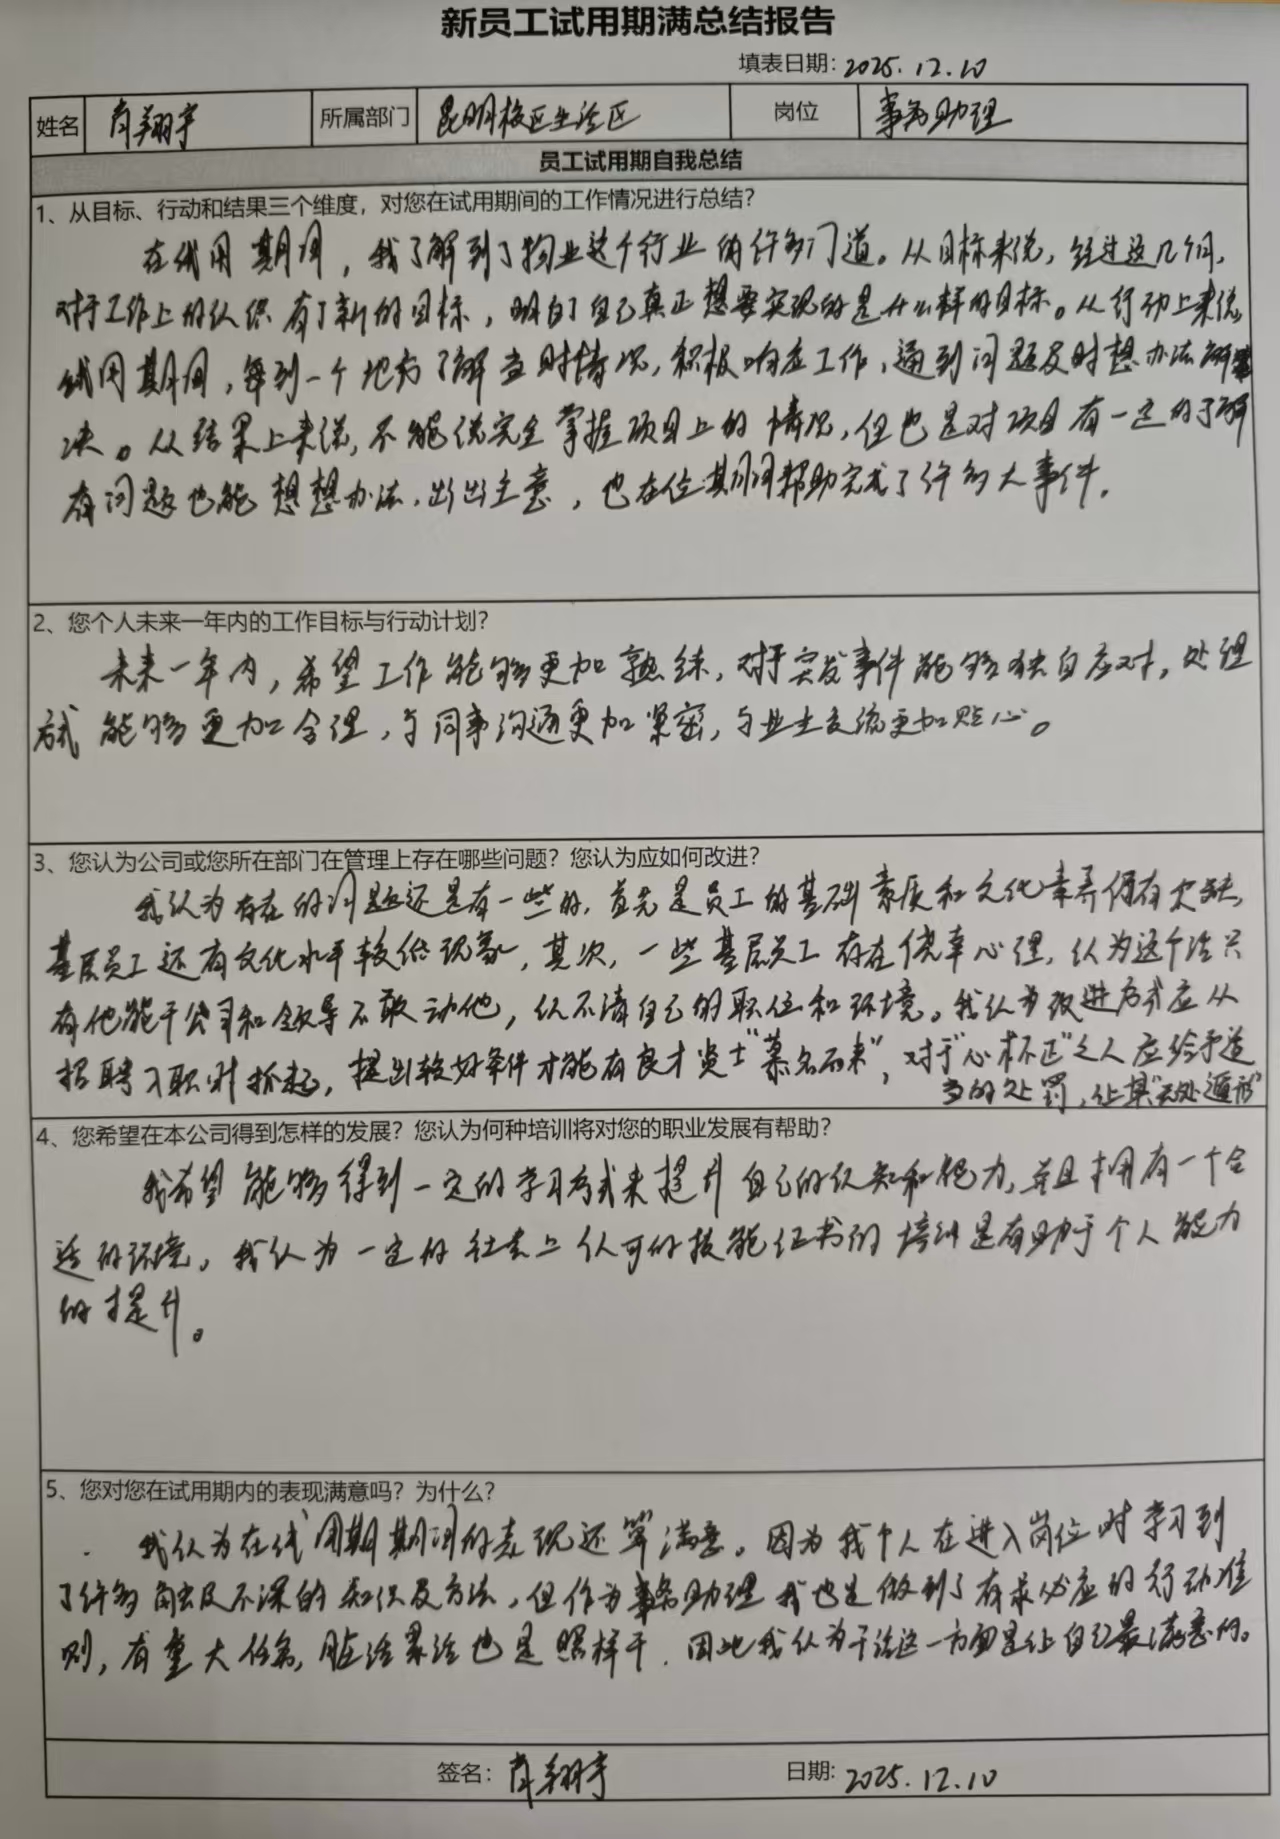 新员工试用期满总结报告
填表日期：2025.12.10
姓名 肖翔宇 所属部门 昆明校区生活区 岗位 事务助理
员工试用期自我总结
1、从目标、行动和结果三个维度，对您在试用期间的工作情况进行总结？
在试用期间，我了解到了物业这个行业的许多门道。从目标来说，经过这几个月，
对于工作上的认识有了新的目标，明白了自己真正想要实现的是什么样的目标。从行动上来说，
试用期间，每到一个地方了解当时情况，积极响应工作，遇到问题及时想办法解
决。从结果上来说，不能说完全掌握项目上的情况，但也是对项目有一定的了解
有问题也能想想办法，出出主意，也在位期间帮助完成了许多大事件。
2、您个人未来一年内的工作目标与行动计划？
未来一年内，希望工作能够更加熟练，对于突发事件能够独自应对，处理
方式能够更加合理，与同事沟通更加紧密，与业主交流更加贴心。
3、您认为公司或您所在部门在管理上存在哪些问题？您认为应如何改进？
我认为存在的问题还是有一些的，首先是员工的基础素质和文化素养仍有欠缺，
基层员工还有文化水平较低现象，其次，一些基层员工存在侥幸心理，认为这个活只
有他能干公司和领导不敢动他，认不清自己的职位和环境。我认为改进方式应从
招聘入职时抓起，提出较好条件才能有良才贤士"慕名而来"，对于"心术不正"之人应给予适
当的处罚，让其"无处遁形"
4、您希望在本公司得到怎样的发展？您认为何种培训将对您的职业发展有帮助？
我希望能够得到一定的学习方式来提升自己的认知和能力，并且拥有一个合
适的环境。我认为一定的社会上认可的技能证书的培训是有助于个人能力
的提升。
5、您对您在试用期内的表现满意吗？为什么？
我认为在试用期期间的表现还算满意。因为我个人在进入岗位时学习到
了许多触及不深的知识及方法，但作为事务助理我也是做到了有求必应的行动准
则，有重大任务，脏活累活也是照样干，因此我认为干活这一方面是让自己最满意的。
签名：肖翔宇 日期：2025.12.10